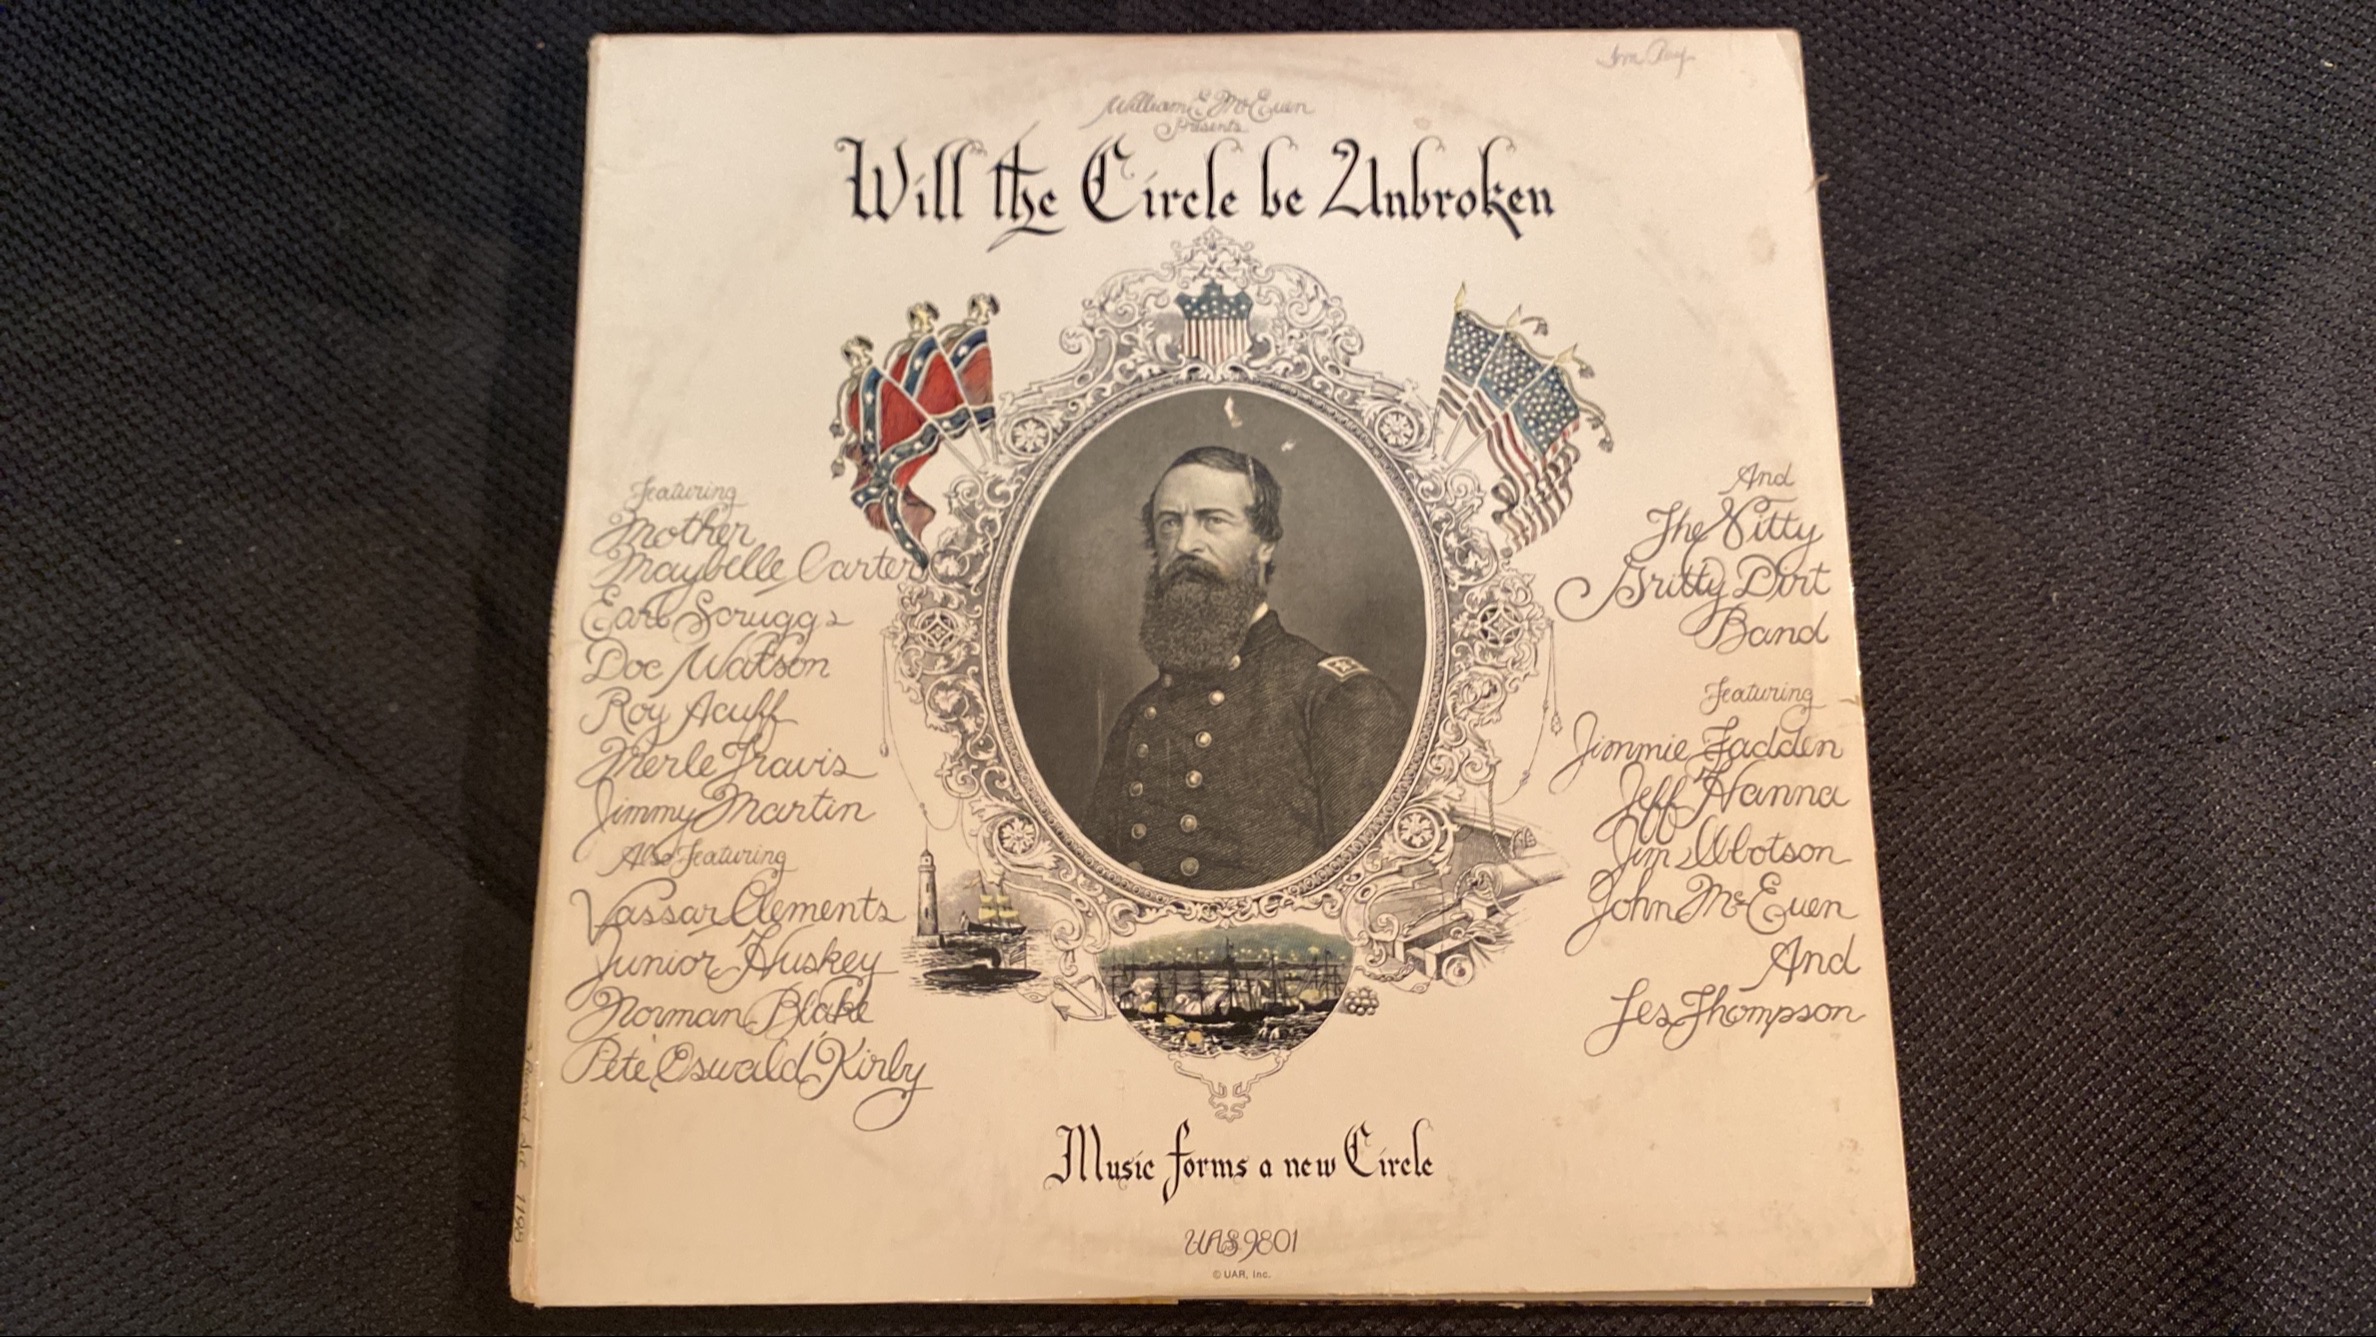 William E. McEuen
Presents
Will the Circle be Unbroken
Featuring
Mother
Maybelle Carter
Earl Scruggs
Doc Watson
Roy Acuff
Merle Travis
Jimmy Martin
Also Featuring
Vassar Clements
Junior Huskey
Norman Blake
Pete 'Oswald' Kirby
And
The Nitty
Gritty Dirt
Band
Featuring
Jimmie Fadden
Jeff Hanna
Jim Ibbotson
John McEuen
And
Les Thompson
Music forms a new Circle
UAS 9801
© UAR, Inc.